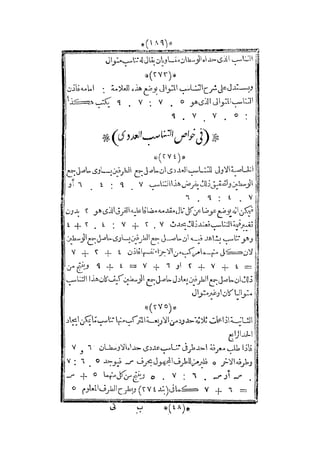 *(١٨٩)*
التناسب الذى حداه الوسطان متساويان يقال له تناسب متوالى
*(٢٧٣)*
ويستدل على شرح التناسب المتوالى بوضع هذه العلامة : امامه فاذن
التناسب المتوالى الذى هو ٥ . ٧ : ٧ . ٩ يكتب هكذا
: ٥ . ٧ . ٩
*(فى خواص التناسب العددى)*
*(٢٧٤)*
الخاصية الاولى للتناسب العددى ان حاصل جمع الطرفين يساوى حاصل جمع
الوسطين ولتحقيق ذلك يفرض هذا التناسب ٧ . ٩ : ٤ . ٦ أو
٧ . ٤ : ٩ . ٦
فيمكن انه يوضع عوضا عن كل تال مقدمه مضافا عليه الفرق الذى هو ٢ بدون
تغيير قيمة التناسب فعند ذلك يحدث ٧ . ٢ + ٧ : ٤ . ٢ + ٤
وهو تناسب يشاهد فيه ان حاصل جمع الطرفين يساوى حاصل جمع الوسطين
لان كلا منهما مركب من الاجزاء نفسها فاذن ٤ + ٢ + ٧
= ٤ + ٧ + ٢ او ٦ + ٧ = ٤ + ٩ وينتج من
ذلك ان حاصل جمع الطرفين يعادل حاصل جمع الوسطين كيف كان هذا التناسب
متواليا كان او غير متوال
*(٢٧٥)*
الثانية اذا علمت ثلاثة حدود من الاربعة المتركب منها تناسب ما يمكن ايجاد
الحد الرابع
فاذا طلب معرفة احد طرفى تناسب عددى حداه الاوسطان ٦ و ٧
وطرفه الاخر ٥ فليرمز للطرف المجهول بحرف صه فيوجد ٥ . ٦ : ٧
. صه أو صه . ٦ : ٧ . ٥ وينتج من كل منهما ٥ + صه
= ٦ + ٧ كما فى (بند ٢٧٤) وبطرح الطرف المعلوم ٥
*(٤٨)* ب فى